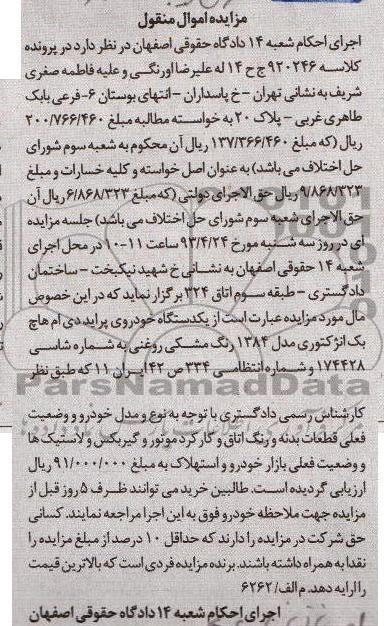 مزایده اموال منقول
اجرای احکام شعبه ۱۴ دادگاه حقوقی اصفهان در نظر دارد در پرونده
کلاسه ۹۲۰۲۴۶ ج ح ۱۴ له علیرضا اورنگی و علیه فاطمه صغری
شریف به نشانی تهران - خ پاسداران - انتهای بوستان ۶- فرعی بابک
طاهری غربی - پلاک ۲۰ به خواسته مطالبه مبلغ ۲۰۰/۷۶۶/۴۶۰
ریال (که مبلغ ۱۳۷/۳۶۶/۴۶۰ ریال آن محکوم به شعبه سوم شورای
حل اختلاف می باشد) به عنوان اصل خواسته و کلیه خسارات و مبلغ
۹/۸۶۸/۳۲۳ ریال حق الاجرای دولتی (که مبلغ ۶/۸۶۸/۳۲۳ ریال آن
حق الاجرای شعبه سوم شورای حل اختلاف می باشد) جلسه مزایده
ای در روز سه شنبه مورخ ۹۳/۴/۲۴ ساعت ۱۱-۱۰ در محل اجرای
شعبه ۱۴ حقوقی اصفهان به نشانی خ شهید نیکبخت - ساختمان
دادگستری - طبقه سوم اتاق ۳۲۴ برگزار نماید که در این خصوص
مال مورد مزایده عبارت است از یکدستگاه خودروی پراید دی ام هاچ
بک انژکتوری مدل ۱۳۸۴ رنگ مشکی روغنی به شماره شاسی
۱۷۴۴۲۸ و شماره انتظامی ۳۳۴ ص ۴۲ ایران ۱۱ که طبق نظر
ParsNamadData
کارشناس رسمی دادگستری با توجه به نوع و مدل خودرو و وضعیت
فعلی قطعات بدنه و رنگ اتاق و کارکرد موتور و گیربکس و لاستیک ها
و وضعیت فعلی بازار خودرو و استهلاک به مبلغ ۹۱/۰۰۰/۰۰۰ ریال
ارزیابی گردیده است. طالبین خرید می توانند ظرف ۵ روز قبل از
مزایده جهت ملاحظه خودرو فوق به این اجرا مراجعه نمایند. کسانی
حق شرکت در مزایده را دارند که حداقل ۱۰ درصد از مبلغ مزایده را
نقدا به همراه داشته باشند. برنده مزایده فردی است که بالاترین قیمت
را ارایه دهد. م الف/ ۶۲۶۲
اجرای احکام شعبه ۱۴ دادگاه حقوقی اصفهان